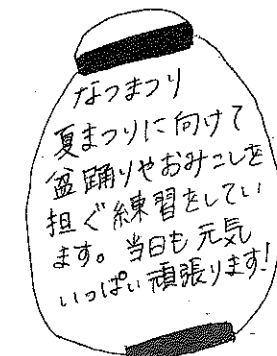 なつまつり
夏まつりに向けて
盆踊りやおみこしを
担ぐ練習をしてい
ます。当日も元気
いっぱい頑張ります!